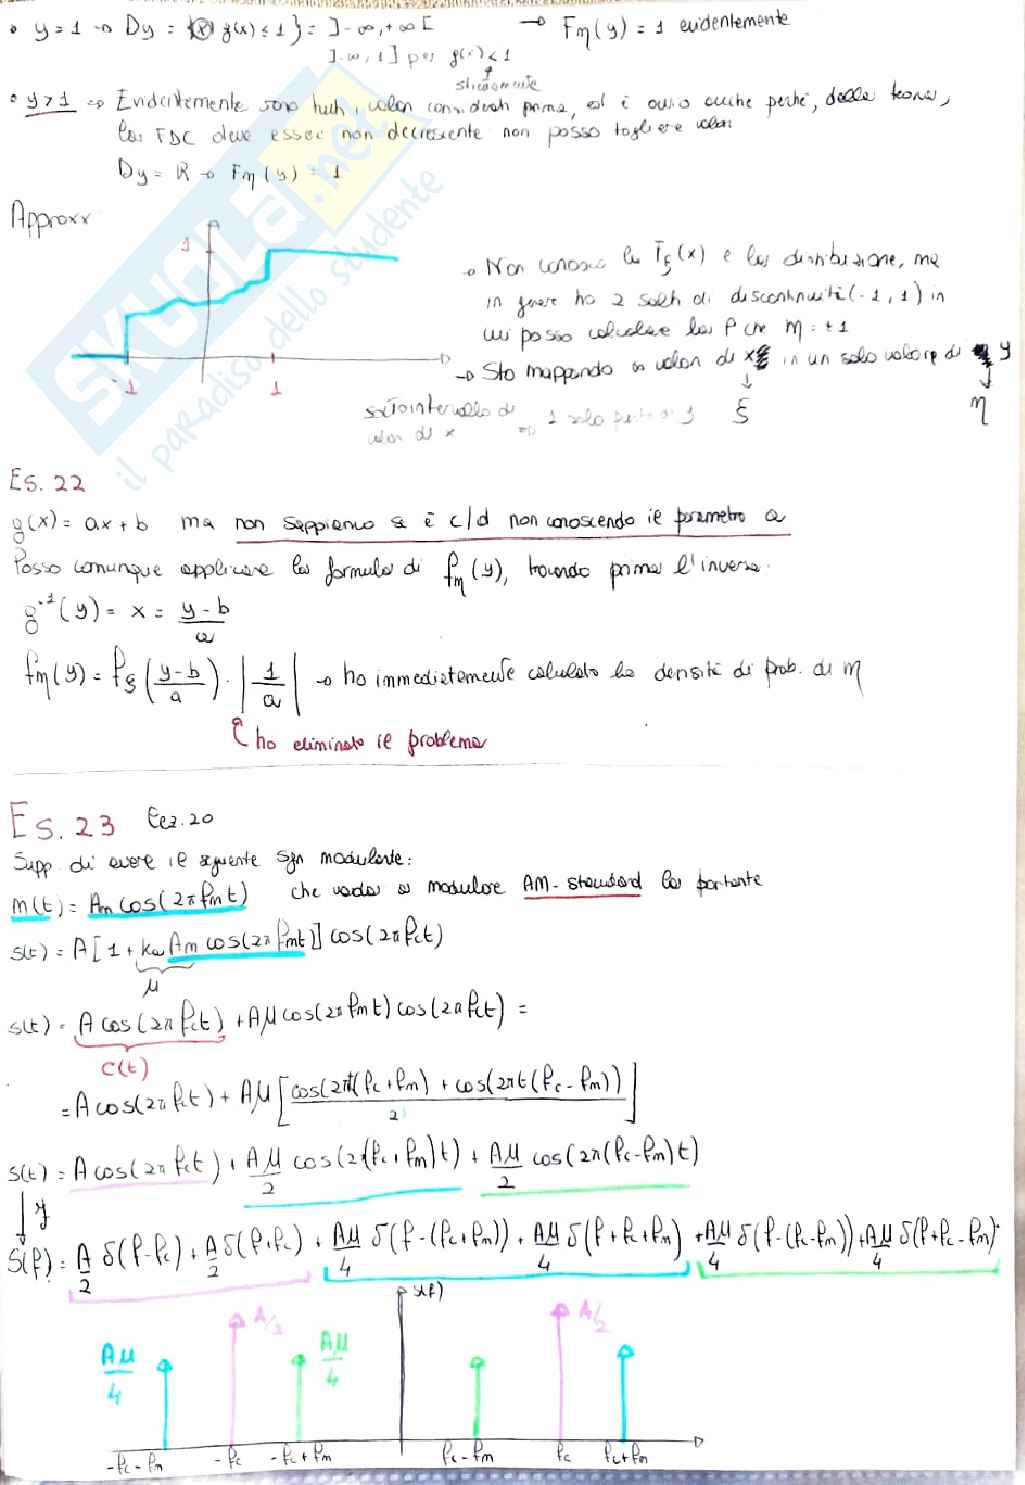 • y=1 → Dy = { x g(x) ≤ 1 } = ]-∞,+∞[ → Fη(y) = 1 evidentemente
]-∞, 1] per g(x) < 1
strettamente
• y>1 => Evidentemente sono tutti i valori considerati prima, ed è ovvio anche perché, dalla teoria,
la FDC deve essere non decrescente non posso togliere valori
Dy = R → Fη(y) = 1
Approxx
1
-1
1
→ Non conosco la Fξ(x) e la distribuzione, ma
in genere ho 2 salti di discontinuità (-1, 1) in
cui posso calcolare la P che η = ±1
→ Sto mappando valori di x in un solo valore di y
sottointervallo di
valori di x
=> 1 solo punto di y
ξ
η
Es. 22
g(x) = ax + b ma non sappiamo se è c/d non conoscendo il parametro a
Posso comunque applicare la formula di fη(y), trovando prima l'inversa.
g⁻¹(y) = x = (y-b)/a
fη(y) = fξ((y-b)/a) · |1/a| → ho immediatamente calcolato la densità di prob. di η
ho eliminato il problema
Es. 23 Eez. 20
Supp. di avere il seguente segn modulante:
m(t) = Am cos(2π fm t) che vada a modulare AM-standard la portante
s(t) = A[1 + ka Am cos(2π fm t)] cos(2π fc t)
μ
s(t) = A cos(2π fc t) + Aμ cos(2π fm t) cos(2π fc t) =
c(t)
= A cos(2π fc t) + Aμ [cos(2πt(fc+fm) + cos(2πt(fc-fm))/2]
s(t) = A cos(2π fc t) + Aμ/2 cos(2π(fc+fm)t) + Aμ/2 cos(2π(fc-fm)t)
↓ F
S(f) = A/2 δ(f-fc) + A/2 δ(f+fc) + Aμ/4 δ(f-(fc+fm)) + Aμ/4 δ(f+fc+fm) + Aμ/4 δ(f-(fc-fm)) + Aμ/4 δ(f+fc-fm)
S(f)
Aμ/4
A/2
Aμ/4
A/2
-fc-fm
-fc
-fc+fm
fc-fm
fc
fc+fm
SKUOLA.net
il paradiso dello studente